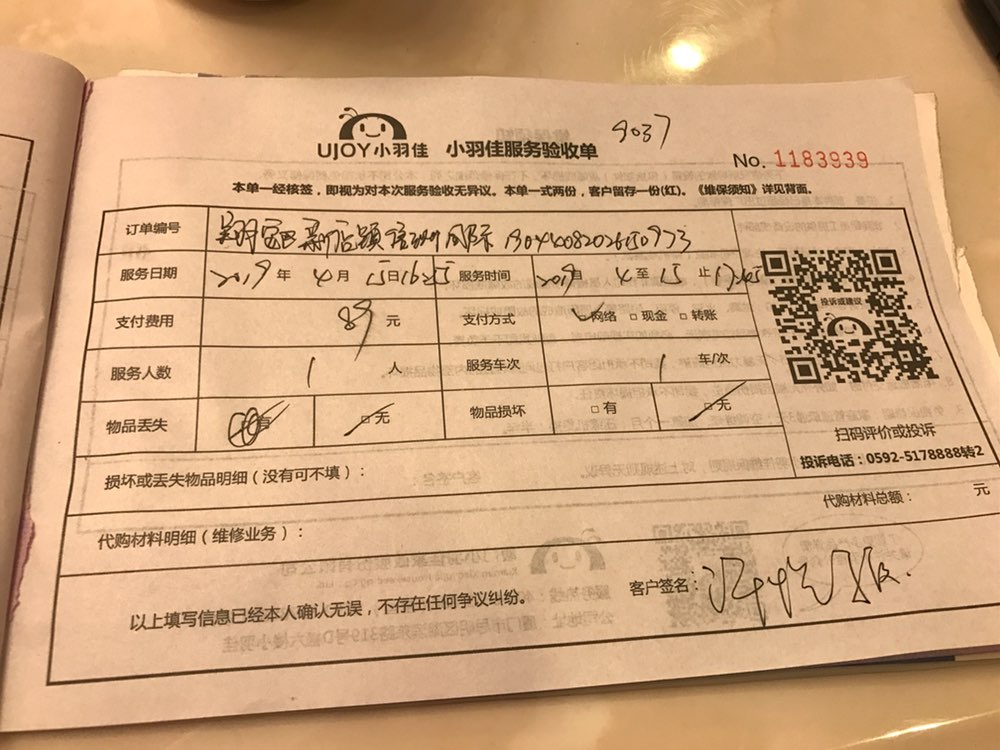 9037
UJOY小羽佳 小羽佳服务验收单
No. 1183939
本单一经核签，即视为对本次服务验收无异议。本单一式两份，客户留存一份(红)。《维保须知》详见背面。
订单编号
服务日期 2019年 4月 15日16:25 服务时间 2019自 4至15止17:25
支付费用 89元 支付方式 □网络 □现金 □转账
服务人数 1人 服务车次 1车/次
物品丢失 □无 物品损坏 □有 □无
投诉或建议
扫码评价或投诉
投诉电话：0592-5178888转2
损坏或丢失物品明细（没有可不填）：
代购材料总额： 元
代购材料明细（维修业务）：
以上填写信息已经本人确认无误，不存在任何争议纠纷。
客户签名：